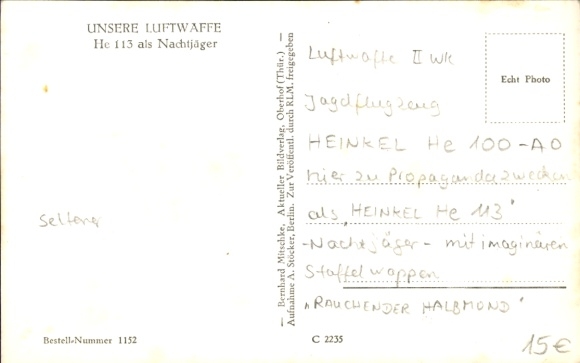 UNSERE LUFTWAFFE
He 113 als Nachtjäger
seltener
Bestell-Nummer 1152
— Bernhard Mitschke, Aktueller Bildverlag, Oberhof (Thür.) —
Aufnahme A. Stöcker, Berlin. Zur Veröffentl. durch RLM. freigegeben
C 2235
Echt Photo
Luftwaffe II WK
Jagdflugzeug
HEINKEL He 100-A0
hier zu Propagandazwecken
als "HEINKEL He 113"
-Nachtjäger- mit imaginären
Staffelwappen
"RAUCHENDER HALBMOND"
15€